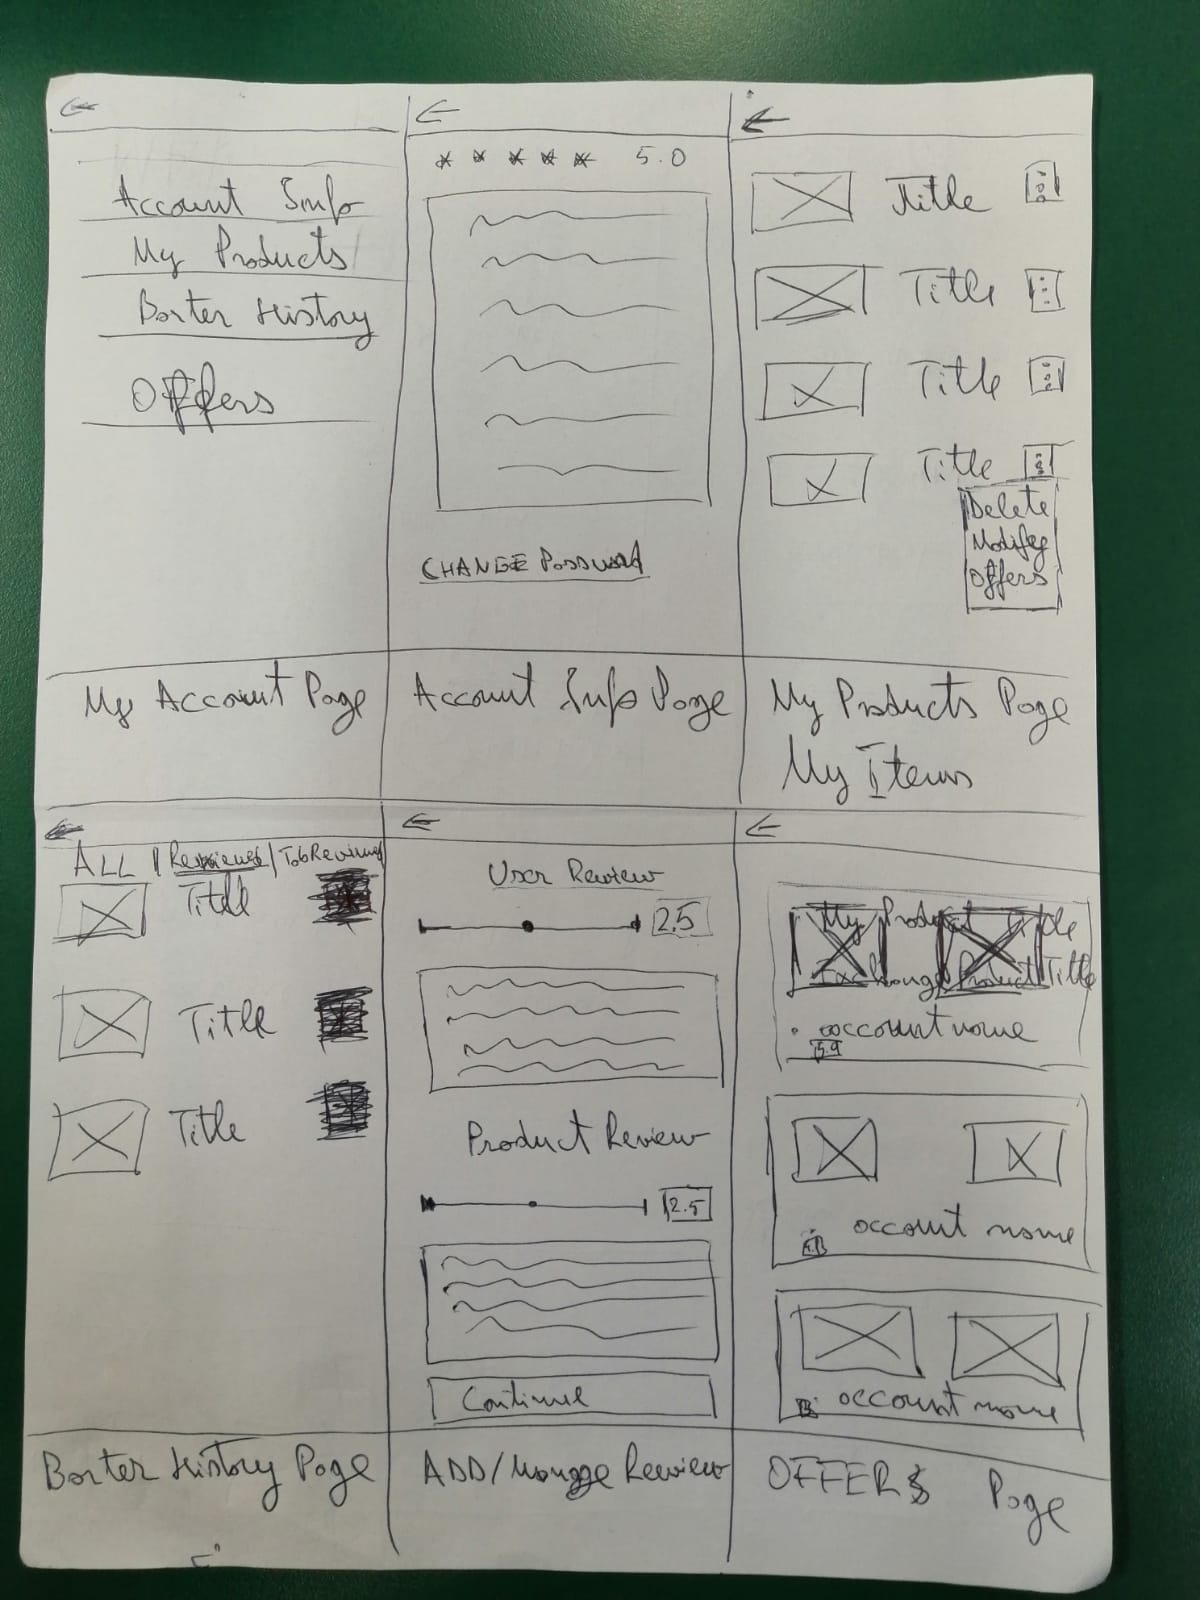 Account Info
My Products
Barter History
Offers
My Account Page
5.0
CHANGE Password
Account Info Page
Title
Title
Title
Title
Delete
Modify
Offers
My Products Page
My Items
ALL | Reviewed | To b Reviewed
Title
Title
Title
Barter History Page
User Review
2.5
Product Review
2.5
Continue
ADD/Manage Review
My Product Title
Exchange Product Title
account name
5.9
account name
account name
OFFERS Page